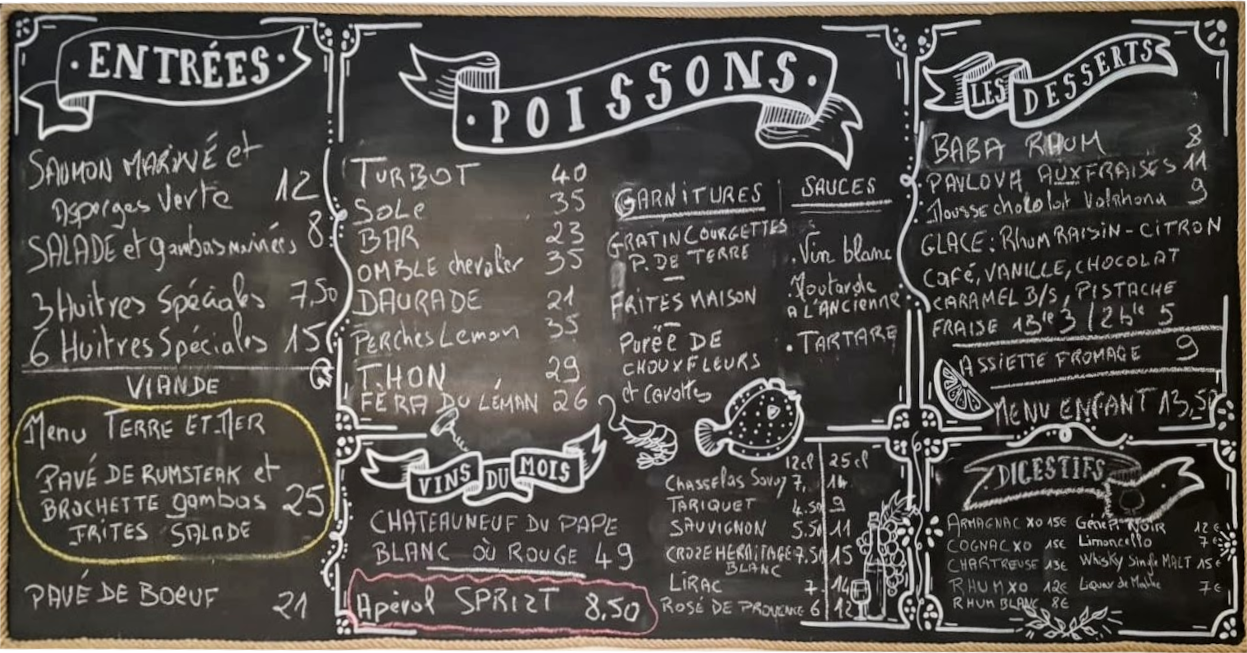 ·ENTRÉES·
SAUMON MARINÉ et
Asperges Verte 12
SALADE et gambas marinées 8
3 Huitres Spéciales 7,50
6 Huitres Spéciales 15
VIANDE
Menu TERRE ET MER
PAVÉ DE RUMSTEAK et
BROCHETTE gambas 25
FRITES SALADE
PAVÉ DE BOEUF 21
·POISSONS·
TURBOT 40
SOLE 35
BAR 23
OMBLE chevalier 35
DAURADE 21
PERCHES Leman 35
THON 29
FERA DU LÉMAN 26
GARNITURES
GRATIN COURGETTES
P. DE TERRE
FRITES MAISON
PURÉE DE
CHOUXFLEURS
et carottes
SAUCES
.Vin blanc
.Moutarde
à L'ANCIENNE
.TARTARE
VINS DU MOIS
CHATEAUNEUF DU PAPE
BLANC OÙ ROUGE 49
Apérol SPRIZT 8,50
12cl 25cl
CHASSELAS Savoy 7, 14
TARIQUET 4.50 9
SAUVIGNON 5.50 11
CROZE HERMITAGE 7.50 15
BLANC
LIRAC 7, 14
ROSÉ DE PROVENCE 6 12
LES DESSERTS
BABA RHUM 8
PAVLOVA AUX FRAISES 11
Mousse chocolat Valrhona 9
GLACE: RHUM RAISIN-CITRON
CAFÉ, VANILLE, CHOCOLAT
CARAMEL B/S, PISTACHE
FRAISE 1 Ble 3 / 2 ble 5
ASSIETTE FROMAGE 9
MENU ENFANT 13,50
DIGESTIFS
ARMAGNAC XO 15€
COGNAC XO 15€
CHARTREUSE 13€
RHUM XO 12€
RHUM BLANC 8€
Génépi NOIR 12€
Limoncello 7€
Whisky Single MALT 15€
Liqueur de 7€